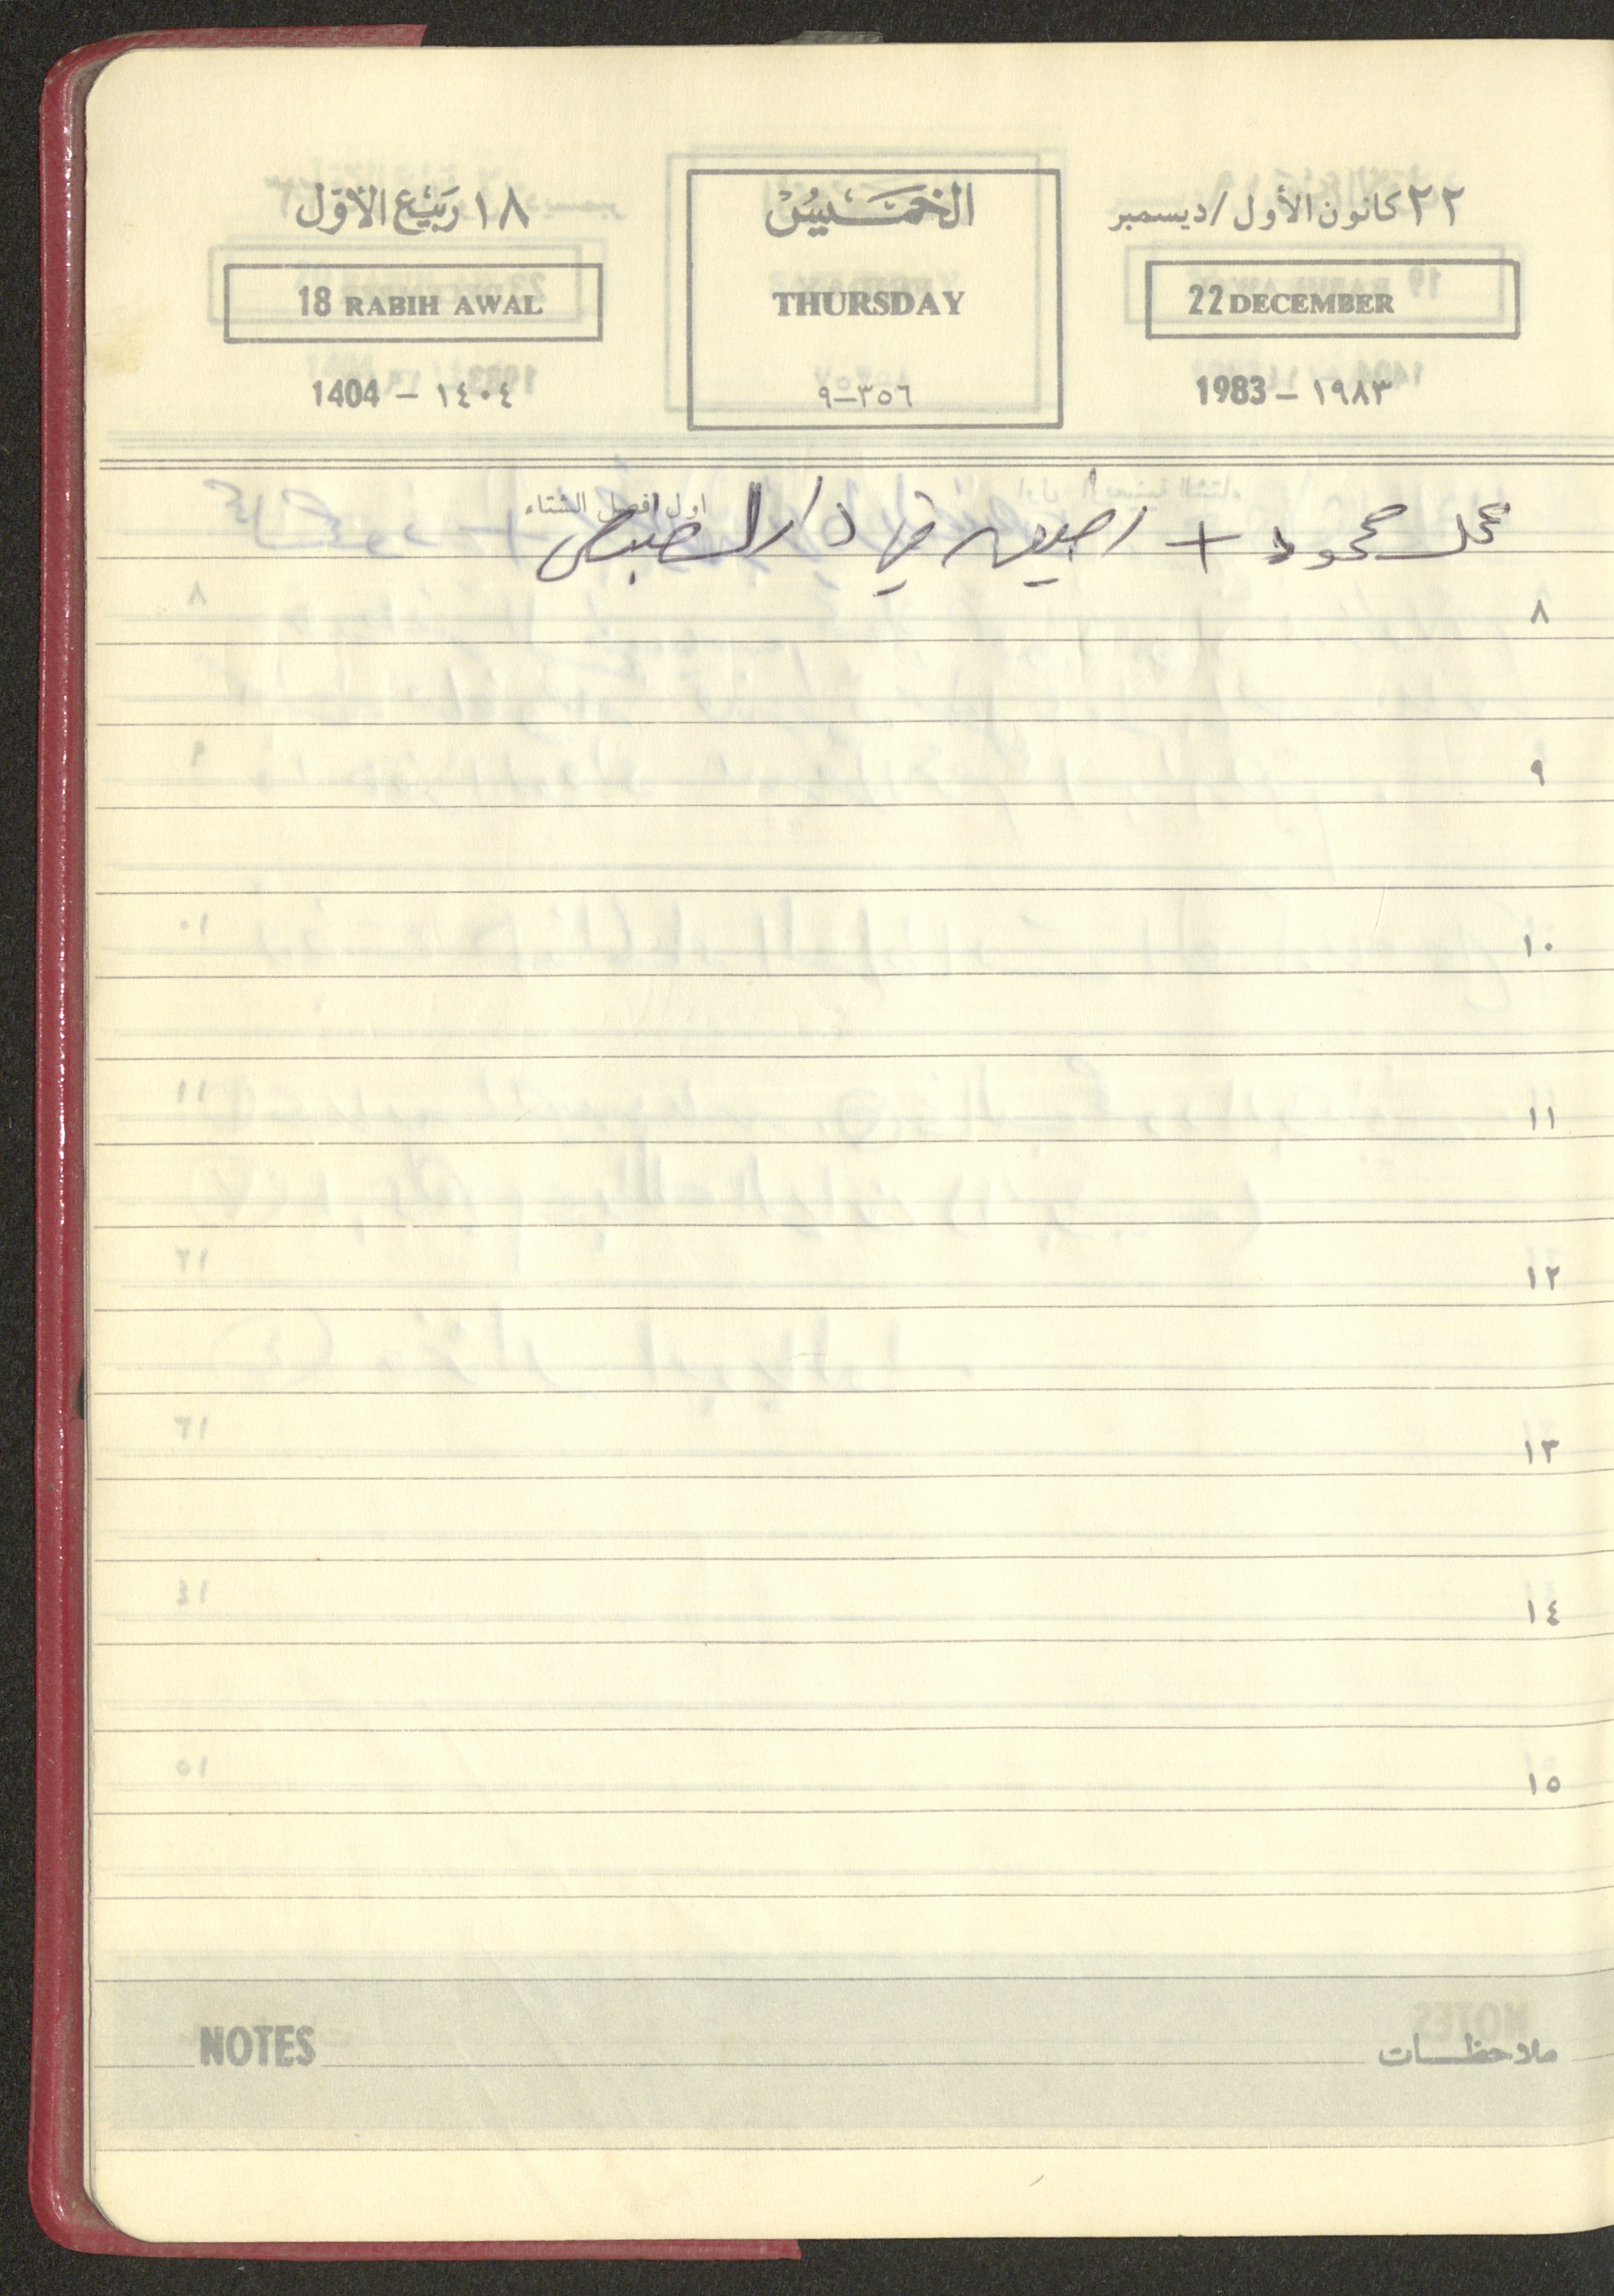 ٢٢ كانون الأول / ديسمبر
الخميس
١٨ ربيع الأول
22 DECEMBER
THURSDAY
18 RABIH AWAL
1983 – ١٩٨٣
٩–٣٥٦
1404 – ١٤٠٤
اول فصل الشتاء
محل محمود + في دار
٨
٩
١٠
١١
١٢
١٣
١٤
١٥
NOTES
ملاحظات